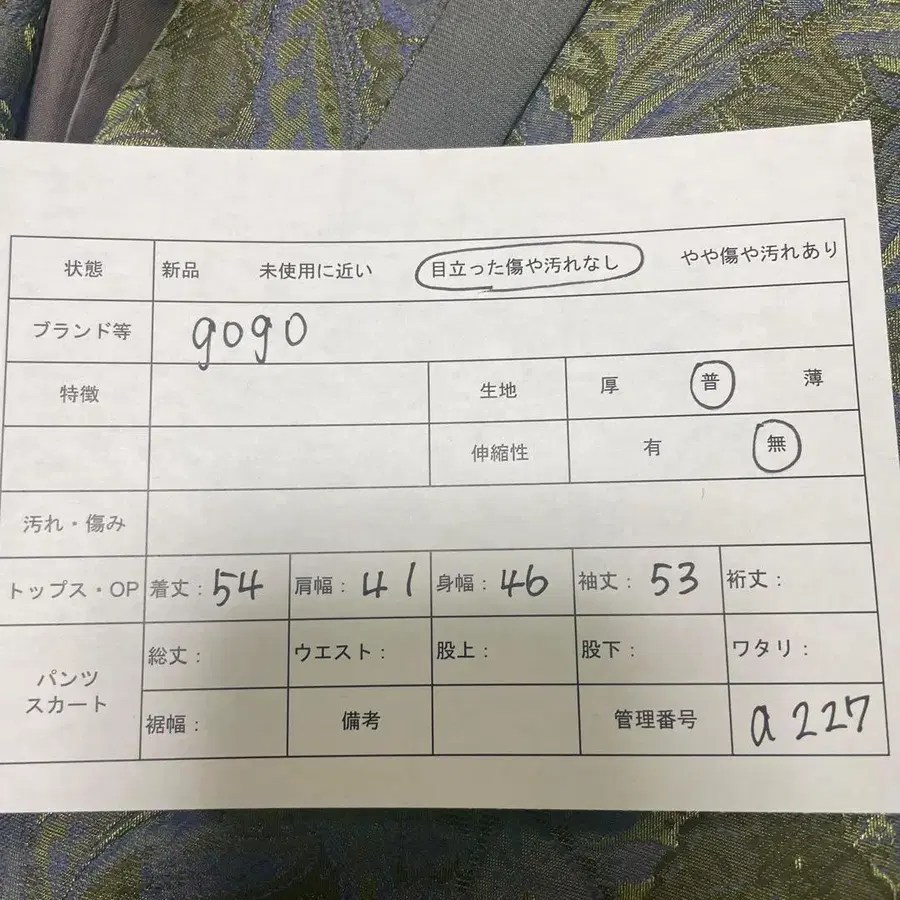 状態 新品 未使用に近い 目立った傷や汚れなし やや傷や汚れあり
ブランド等 gogo
特徴 生地 厚 普 薄
伸縮性 有 無
汚れ・傷み
トップス・OP 着丈：54 肩幅：41 身幅：46 袖丈：53 裄丈：
パンツ スカート 総丈： ウエスト： 股上： 股下： ワタリ：
裾幅： 備考 管理番号 a227